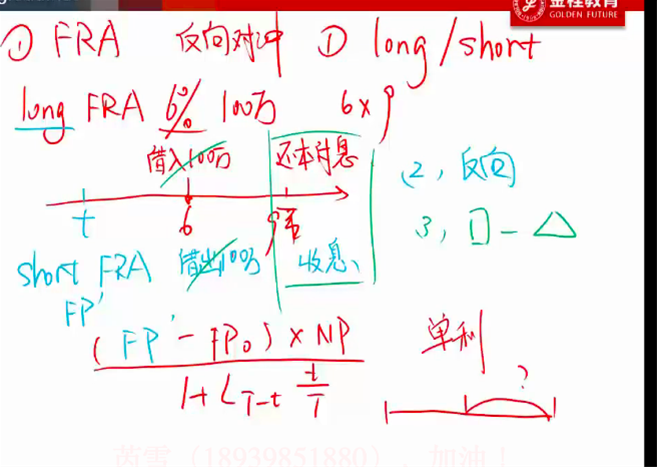 金程教育
GOLDEN FUTURE
① FRA 反向对冲 ① long/short
long FRA 6% 100万 6x9
借入100万 还本付息
(2, 反向
t 6 9
3, □-△
short FRA 借出100万 收息、
FP'
(FP'-FP₀)×NP 单利
1+L_{T-t} t/T ?
黄雪（18939851880），加油！